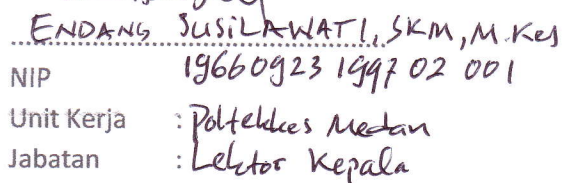 ENDANG SUSILAWATI, SKM, M.Kes
NIP 19660923 1997 02 001
Unit Kerja : Poltekkes Medan
Jabatan : Lektor Kepala